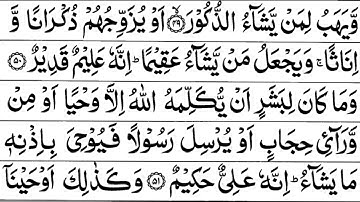 وَّيَهَبُ لِمَنْ يَّشَآءُ الذُّكُوْرَ ﴿۴۹﴾ اَوْ يُزَوِّجُهُمْ ذُكْرَانًا وَّ
اِنَاثًا ۚ وَيَجْعَلُ مَنْ يَّشَآءُ عَقِيْمًا ؕ اِنَّهٗ عَلِيْمٌ قَدِيْرٌ ﴿۵۰﴾
وَمَا كَانَ لِبَشَرٍ اَنْ يُّكَلِّمَهُ اللّٰهُ اِلَّا وَحْيًا اَوْ مِنْ
وَّرَآئِ حِجَابٍ اَوْ يُرْسِلَ رَسُوْلًا فَيُوْحِيَ بِاِذْنِهٖ
مَا يَشَآءُ ؕ اِنَّهٗ عَلِيٌّ حَكِيْمٌ ﴿۵۱﴾ وَكَذٰلِكَ اَوْحَيْنَاۤ